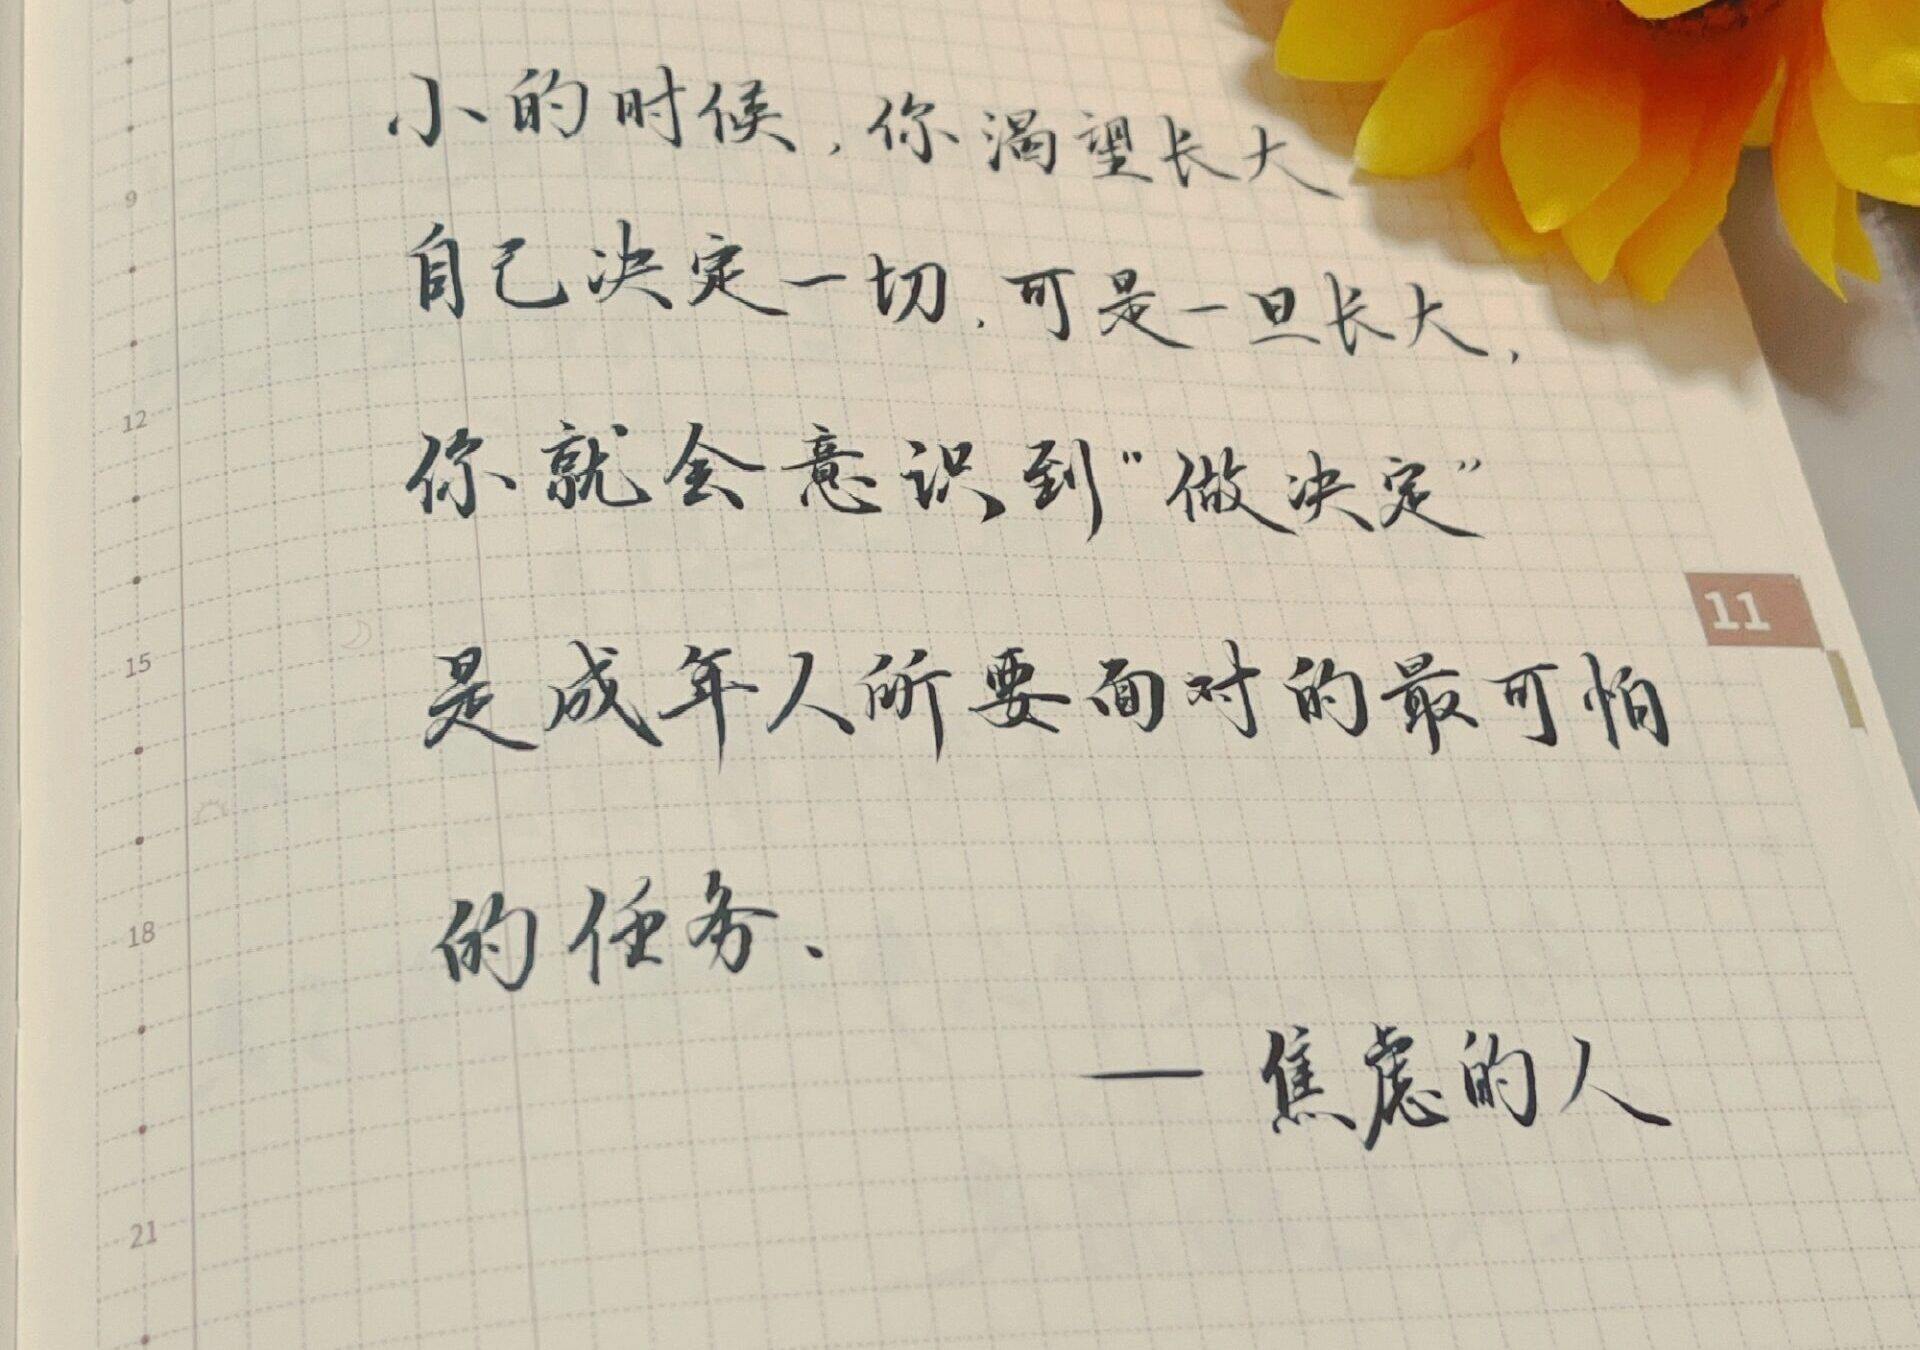 小的时候，你渴望长大
9
自己决定一切，可是一旦长大，
12
你就会意识到“做决定”
11
15
是成年人所要面对的最可怕
18
的任务、
— 焦虑的人
21